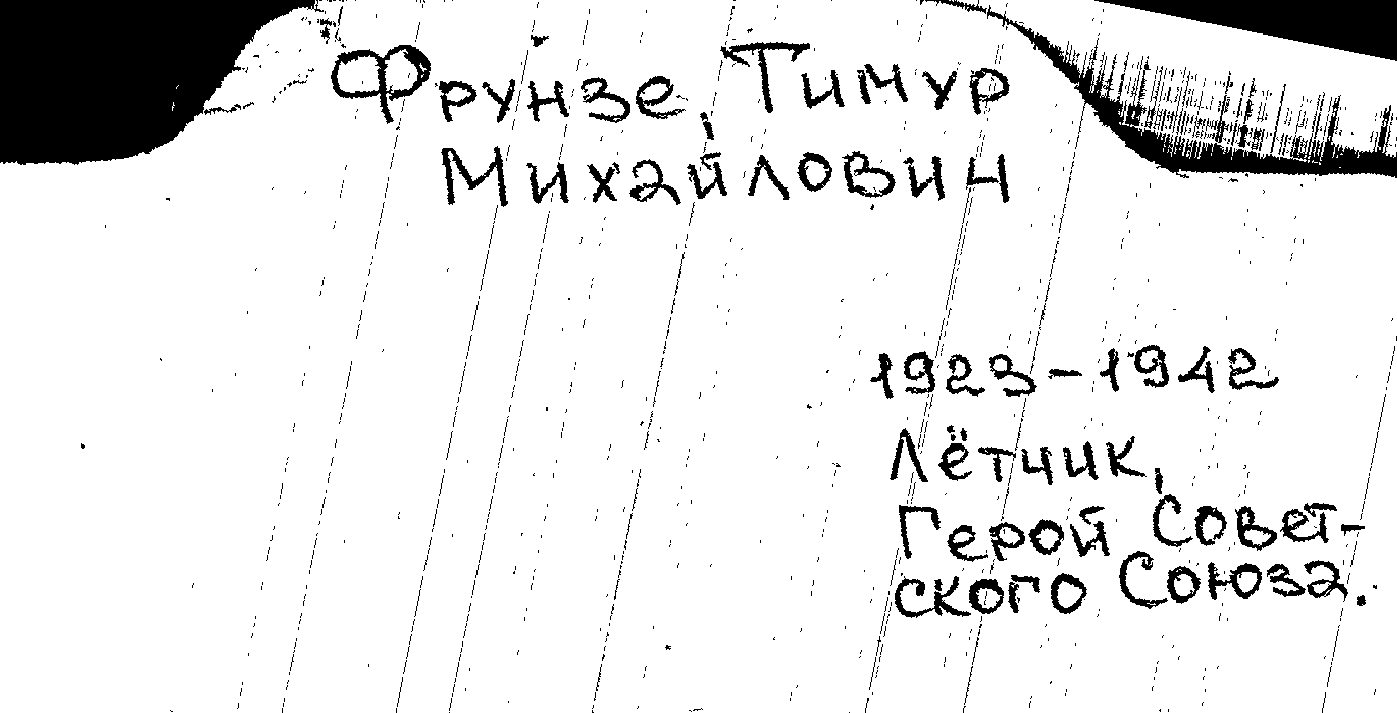 Фрунзе, Тимур
Михайлович
1923-1942
Лётчик,
Герой Совет-
ского Союза.